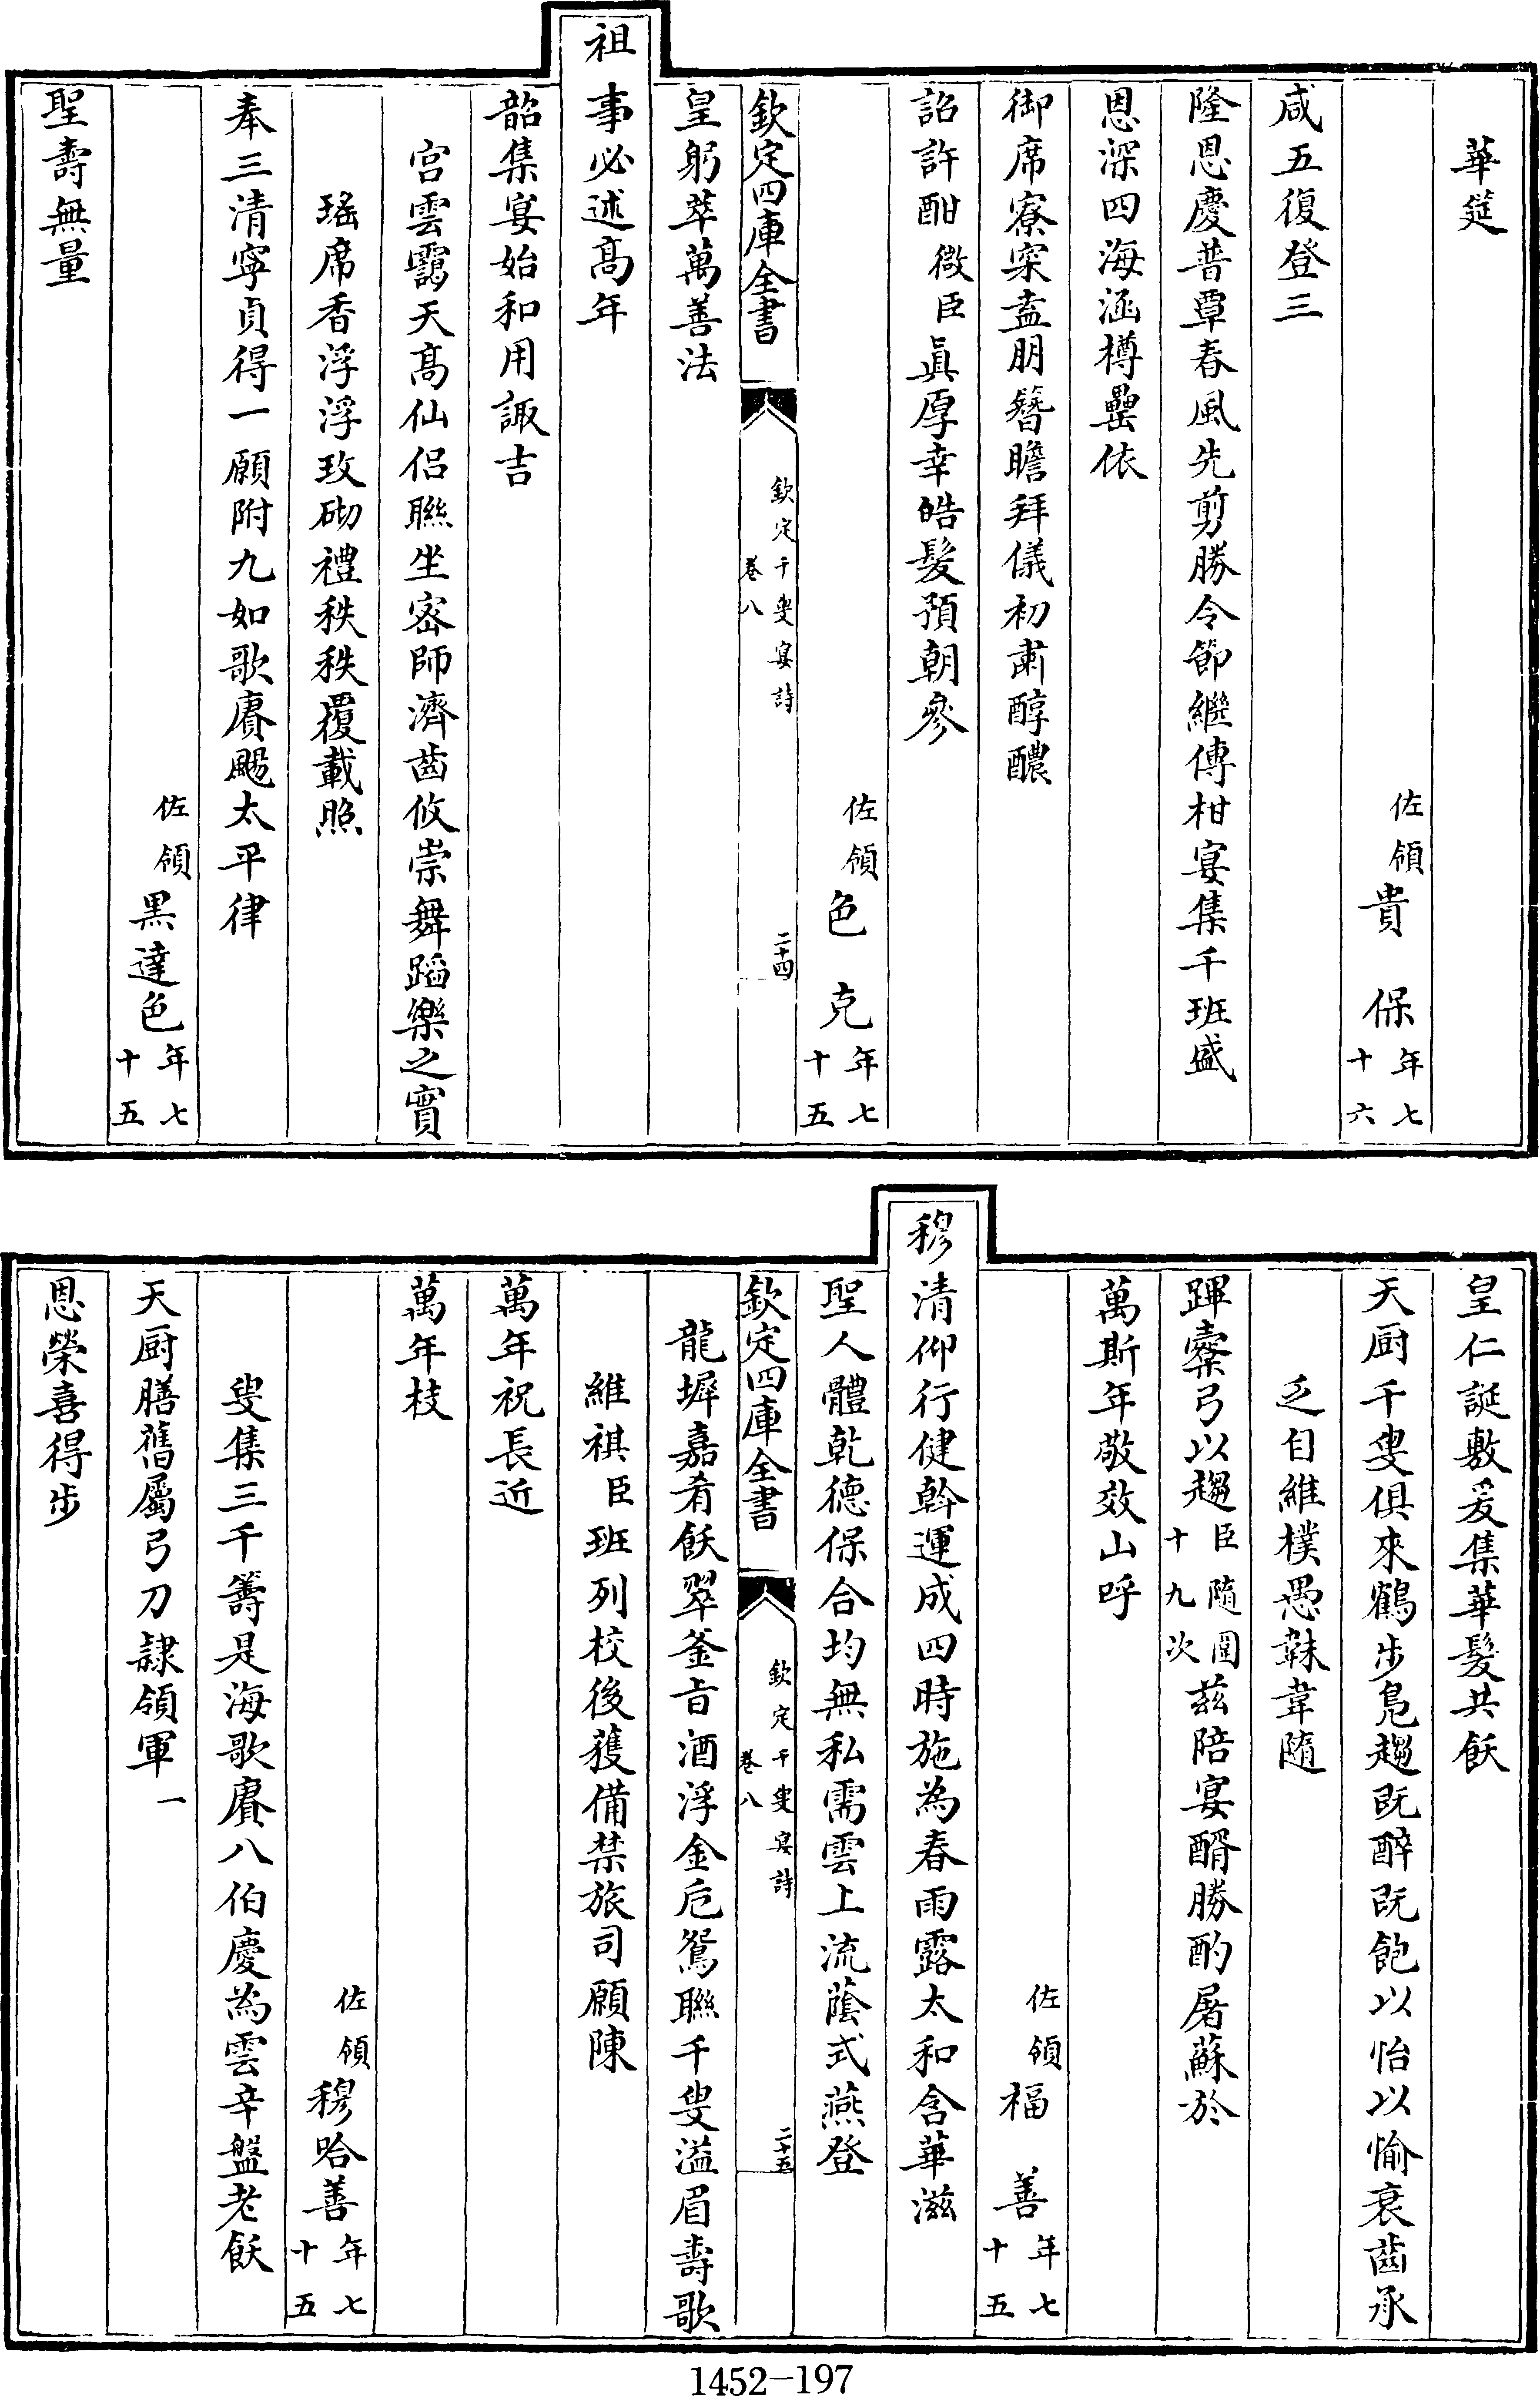 華筵
佐領貴保年七十六
咸五復登三
隆恩慶普覃春風先剪勝令節繼傳柑宴集千班盛
恩深四海涵樽罍依
御席寮寀盍朋簪瞻拜儀初肅醇醲
詔許酣微臣真厚幸皓髮預朝參
佐領色克年七十五
欽定四庫全書
欽定千叟宴詩
卷八
二十四
皇躬萃萬善法
祖事必述高年
韶集宴始和用諏吉
宮雲靄天高仙侶聯坐密師濟齒攸崇舞蹈樂之實
瑤席香浮浮玫砌禮秩秩覆載照
奉三清寧貞得一願附九如歌賡颺太平律
佐領黑達色年七十五
聖壽無量
皇仁誕敷爰集華髮共飫
天厨千叟俱來鶴步鳧趨既醉既飽以怡以愉衰齒承
乏自維樸愚韎韋隨
蹕櫜弓以趨臣隨圍十九次茲陪宴醑勝酌屠蘇於
萬斯年敬效山呼
佐領福善年七十五
穆清仰行健斡運成四時施為春雨露太和含華滋
聖人體乾德保合均無私需雲上流蔭式燕登
欽定四庫全書
欽定千叟宴詩
卷八
二十五
龍墀嘉肴飫翠釜旨酒浮金卮鴛聯千叟溢眉壽歌
維祺臣班列校後獲備禁旅司願陳
萬年祝長近
萬年枝
佐領穆哈善年七十五
叟集三千籌是海歌賡八伯慶為雲辛盤老飫
天厨膳舊屬弓刀隷領軍一
恩榮喜得步
1452-197